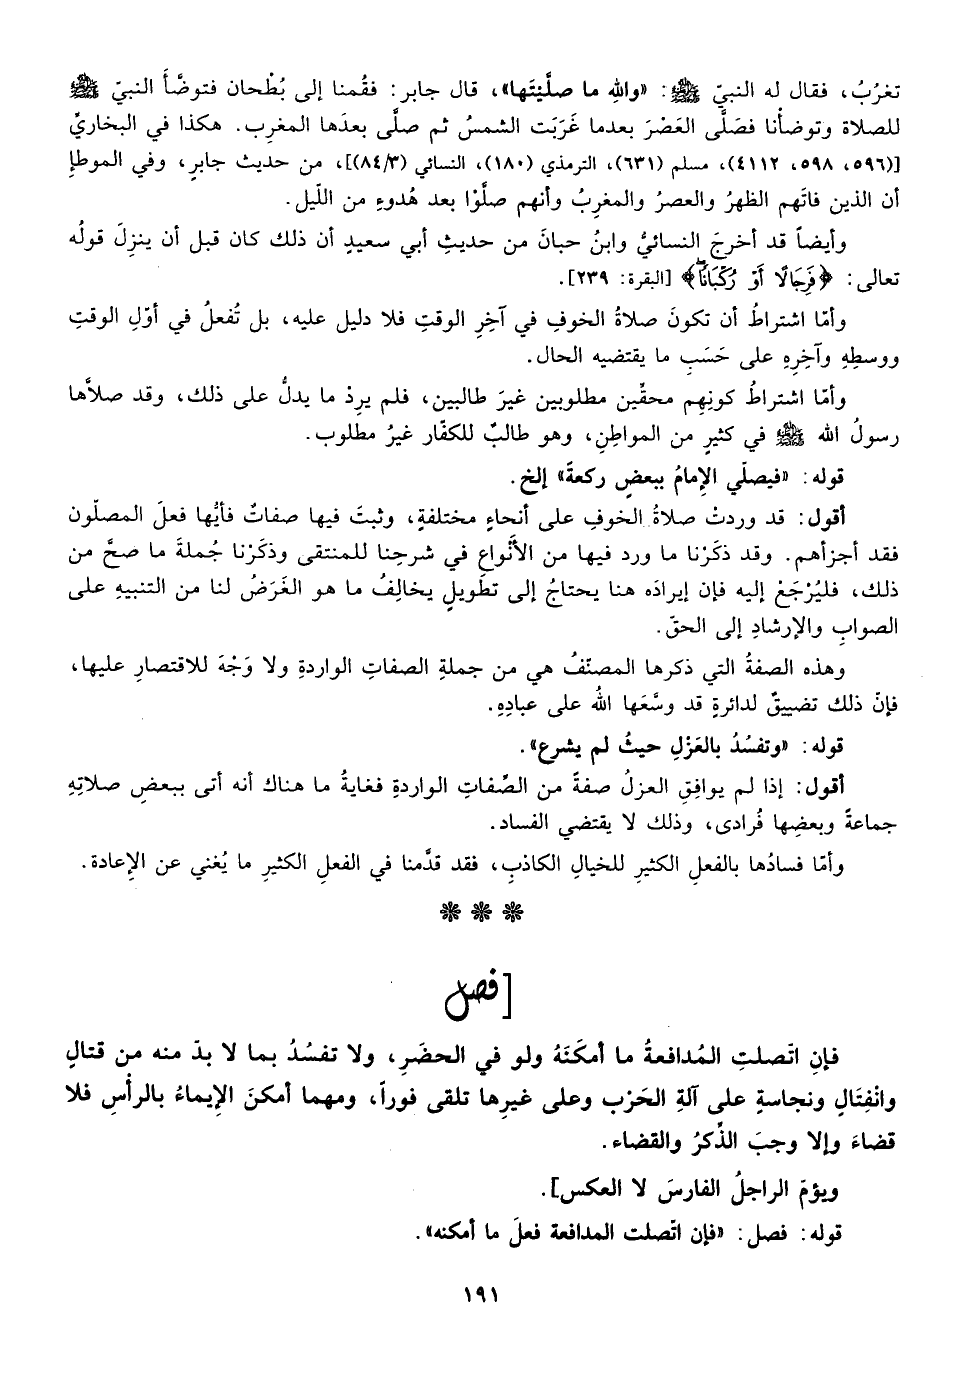 تغرُبُ، فقال له النبيّ ﷺ: «واللهِ ما صلَّيتَها»، قال جابر: فقُمنا إلى بُطْحان فتوضَّأَ النبيّ ﷺ
للصلاة وتوضأنا فصَلَّى العَصْرَ بعدما غَرَبَت الشمسُ ثم صلَّى بعدَها المغرِب. هكذا في البخاريِّ
[(٥٩٦، ٥٩٨، ٤١١٢)، مسلم (٦٣١)، الترمذي (١٨٠)، النسائي (٨٤/٣)]، من حديث جابرٍ، وفي الموطإِ
أن الذين فاتَهم الظهرُ والعصرُ والمغربُ وأنهم صلَّوْا بعد هُدوءٍ من اللّيل.
وأيضاً قد أخرجَ النسائيُّ وابنُ حبانَ من حديثِ أبي سعيدٍ أن ذلك كان قبل أن ينزِلَ قولُه
تعالى: ﴿فَرِجَالًا أَوْ رُكْبَانًاۖ﴾ [البقرة: ٢٣٩].
وأمّا اشتراطُ أن تكونَ صلاةُ الخوفِ في آخِرِ الوقتِ فلا دليل عليه، بل تُفعلُ في أوّلِ الوقتِ
ووسطِهِ وآخِرِهِ على حَسَبِ ما يقتضيه الحال.
وأمّا اشتراطُ كونِهِم محقّين مطلوبين غيرَ طالبين، فلم يرِدْ ما يدلُّ على ذلك، وقد صلاَّها
رسولُ الله ﷺ في كثيرٍ من المواطِنِ، وهو طالبٌ للكفّار غيرُ مطلوب.
قوله: «فيصلّي الإمامُ ببعضٍ ركعةً» إلخ.
أقول: قد وردتْ صلاةُ الخوفِ على أنحاءٍ مختلفةٍ، وثبتَ فيها صفاتٌ فأيُّها فعلَ المصلّون
فقد أجزأهم. وقد ذكَرْنا ما ورد فيها من الأَنَّواعِ في شرحِنا للمنتقى وذكَرْنا جُملةَ ما صحَّ من
ذلك، فليُرْجَعْ إليه فإن إيرادَه هنا يحتاجُ إلى تطويلٍ يخالِفُ ما هو الغَرَضُ لنا من التنبيهِ على
الصوابِ والإرشادِ إلى الحقّ.
وهذه الصفةُ التي ذكرها المصنّفُ هي من جملةِ الصفاتِ الواردةِ ولا وَجْهَ للاقتصارِ عليها،
فإنّ ذلك تضييقٌ لدائرةٍ قد وسَّعَها اللهُ على عبادِهِ.
قوله: «وتفسُدُ بالعَزْلِ حيثُ لم يشرع».
أقول: إذا لم يوافِقِ العزلُ صفةً من الصِّفاتِ الواردةِ فغايةُ ما هناك أنه أتى ببعضِ صلاتِهِ
جماعةً وبعضِها فُرادى، وذلك لا يقتضي الفساد.
وأمّا فسادُها بالفعلِ الكثيرِ للخيالِ الكاذبِ، فقد قدَّمنا في الفعلِ الكثيرِ ما يُغني عن الإعادة.
❋ ❋ ❋
[فصل
فإنِ اتّصلتِ المُدافعةُ ما أمكَنَهُ ولو في الحضَرِ، ولا تفسُدُ بما لا بدّ منه من قتالٍ
وانْفِتَالٍ ونجاسةٍ على آلةِ الحَرْب وعلى غيرِها تلقى فوراً، ومهما أمكنَ الإيماءُ بالرأْسِ فلا
قضاءَ وإلا وجبَ الذِّكرُ والقضاء.
ويؤمّ الراجلُ الفارسَ لا العكس].
قوله: فصل: «فإن اتّصلت المدافعة فعلَ ما أمكنه».
١٩١